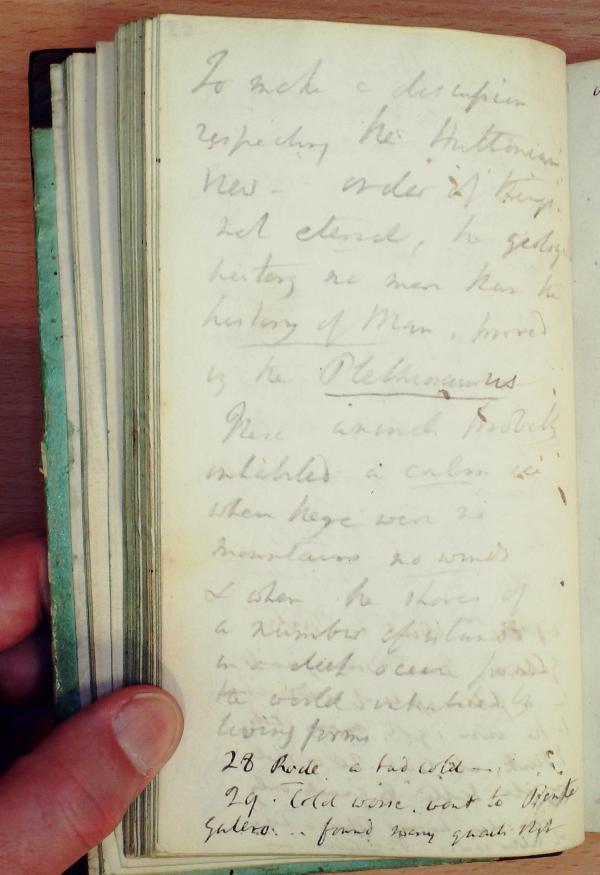 To make a discussion
respecting the Huttonian
view - order of things
not eternal, the geology
history no more than the
history of Man, proved
by the Plethiosaurus
These animals probably
inhabited a calm sea
when there were no
mountains no winds
& when the shores of
a number of islands
in a deep ocean formed
the world inhabited by
living forms
28 Rode a bad cold
29. Cold worse. went to
found many quails